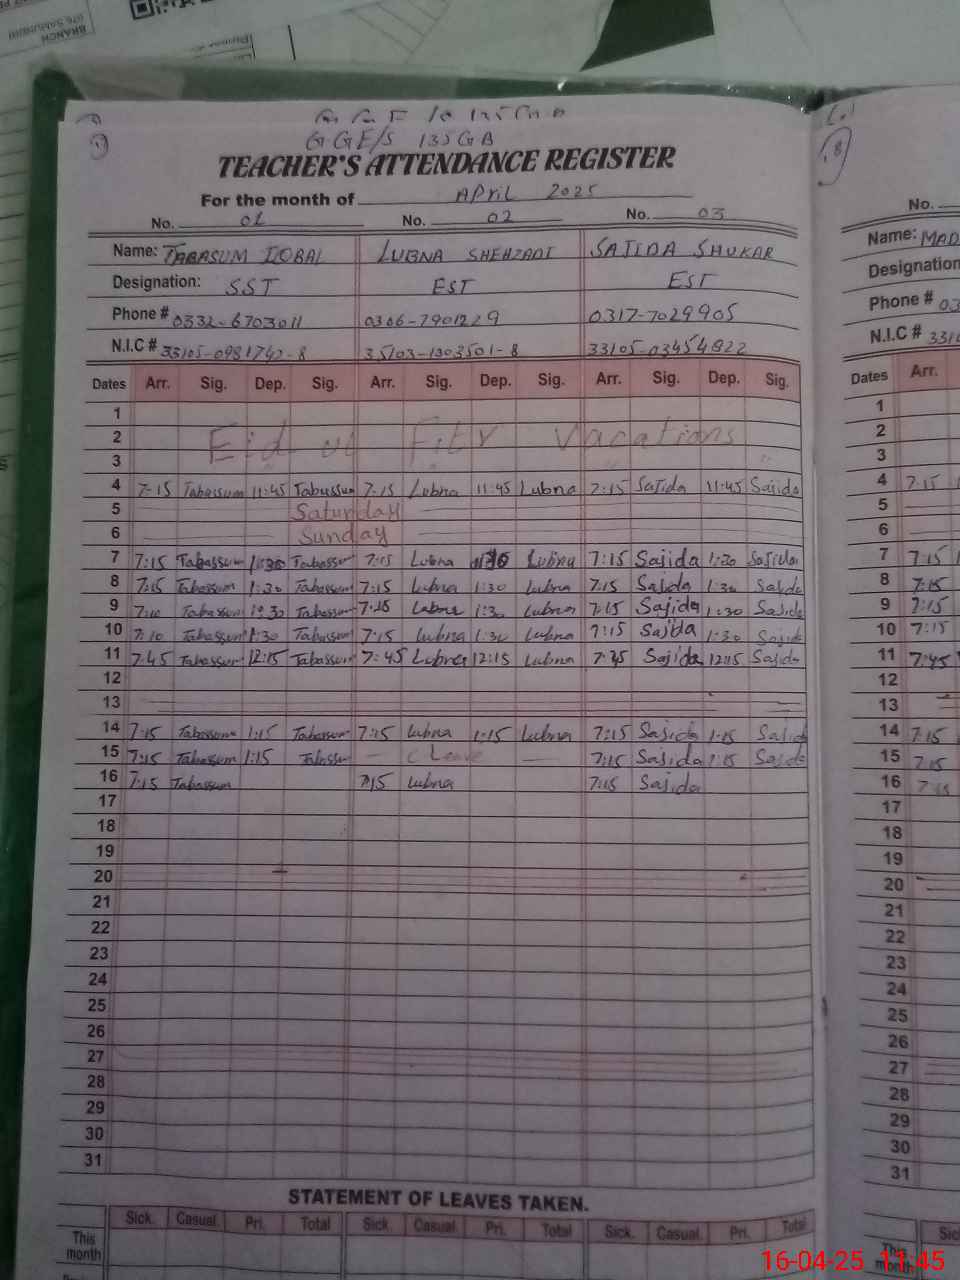 BRANCH
GGE/S 135GB
TEACHER'S ATTENDANCE REGISTER
For the month of April 2025
No. 01 No. 02 No. 03
Name: TABASUM IQBAL LUBNA SHEHZADI SAJIDA SHUKAR
Designation: SST EST EST
Phone # 0332-6703011 0306-7901229 0317-7029905
N.I.C # 33105-0981742-8 35103-1303501-8 33105-03454822
Dates Arr. Sig. Dep. Sig. Arr. Sig. Dep. Sig. Arr. Sig. Dep. Sig.
1
2 Eid ul Fitr Vacations
3
4 7-15 Tabassum 11:45 Tabassum 7-15 Lubna 11:45 Lubna 7:15 Sajida 11:45 Sajida
5 Saturday
6 Sunday
7 7:15 Tabassum 1:30 Tabassum 7:15 Lubna Lubna 7:15 Sajida 1:30 Sajida
8 7:15 Tabassum 1:30 Tabassum 7:15 Lubna 1:30 Lubna 7:15 Sajida 1:30 Sajida
9 7:10 Tabassum 1:30 Tabassum 7:15 Lubna 1:30 Lubna 7:15 Sajida 1:30 Sajida
10 7:10 Tabassum 1:30 Tabassum 7:15 Lubna 1:30 Lubna 7:15 Sajida 1:30 Sajida
11 7:45 Tabassum 12:15 Tabassum 7:45 Lubna 12:15 Lubna 7:45 Sajida 12:15 Sajida
12
13
14 7:15 Tabassum 1:15 Tabassum 7:15 Lubna 1:15 Lubna 7:15 Sajida 1:15 Sajida
15 7:15 Tabassum 1:15 Tabassum C Leave 7:15 Sajida 1:15 Sajida
16 7:15 Tabassum 7:15 Lubna 7:15 Sajida
17
18
19
20
21
22
23
24
25
26
27
28
29
30
31
STATEMENT OF LEAVES TAKEN.
Sick. Casual. Pri. Total Sick. Casual. Pri. Total Sick. Casual. Pri. Total
This month
No.
Name: MAD
Designation
Phone # 03
N.I.C # 3310
Dates Arr.
1
2
3
4 7-15
5
6
7 7:15
8 7:15
9 7:15
10 7:15
11 7:45
12
13
14 7:15
15 7:15
16 7:15
17
18
19
20
21
22
23
24
25
26
27
28
29
30
31
Sic
This month
16-04-25 11:45